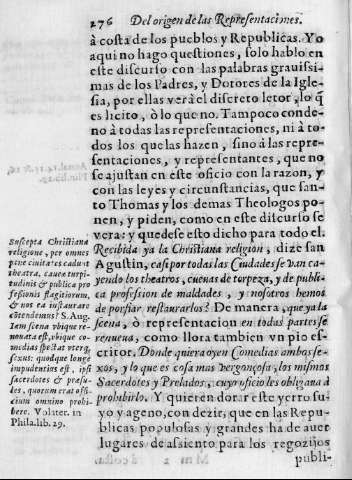 276 Del origen de las Representaciones.
à costa de los pueblos y Republicas. Yo
aqui no hago questiones, solo hablo en
este discurso con las palabras grauissi-
mas de los Padres, y Dotores de la Igle-
sia, por ellas verà el discreto letor, lo q̃
es licito, ò lo que no. Tampoco conde-
no à todas las representaciones, ni à to-
dos los que las hazen, sino à las repre-
sentaciones, y representantes, que no
se ajustan en este oficio con la razon, y
con las leyes y circunstancias, que san-
to Thomas y los demas Theologos po-
nen, y piden, como en este discurso se
vera: y quedese esto dicho para todo el.
Recibida ya la Christiana religion, dize san
Agustin, casi por todas las Ciudades se van ca-
yendo los theatros, cuenas de torpeza, y de publi-
ca profession de maldades, y nosotros hemos
de porfiar restaurarlos? De manera, que ya la
scena, ò representacion en todas partes se
renueua, como llora tambien vn pio es-
critor. Donde quiera oyen Comedias ambos se-
xos, y lo que es cosa mas vergonçosa, los mismos
Sacerdotes y Prelados, cuyo oficio les obligaua à
prohibirlo. Y quieren dorar este yerro su-
yo y ageno, con dezir, que en las Repu-
blicas populosas y grandes ha de auer
lugares de assiento para los regozijos
publi-
Suscepta Christiana
religione, per omnes
pene ciuitates cadunt
theatra, caueæ turpi-
tudinis & publica pro
fessionis flagitiorum,
& nos ea instaurare
cõtendemus? S. Aug.
Iam scena vbique re-
nouata est, vbique co-
medias spectat vterq̃
sexus: quodque longe
impudentius est, ipsi
sacerdotes & præsu-
les, quorum erat offi-
cium omnino prohi-
bere. Volater. in
Phila. lib. 29.